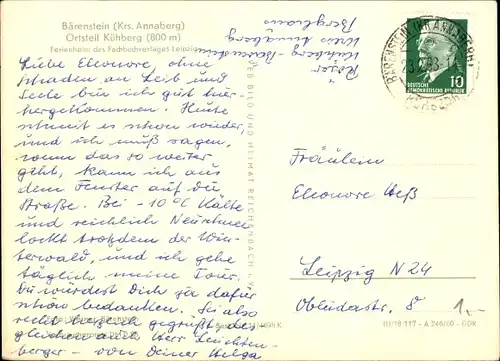 Bärenstein (Krs. Annaberg)
Ortsteil Kühberg (800 m)
Ferienheim des Fachbuchverlages Leipzig
Liebe Eleonore, ohne
Schaden an Leib und
Seele bin ich gut hier-
hergekommen. Heute
schneit es schon wieder,
und ich muß sagen,
wenn das so weiter
geht, kann ich aus
dem Fenster auf die
Straße. Bei -10°C Kälte
und reichlich Neuschnee
lockt trotzdem der Win-
terwald, und ich gehe
täglich meine Tour.
Du würdest Dich ja dafür
schön bedanken. Sei also
recht herzlich gegrüßt, des-
gleichen auch Herr Leuchten-
berger - von Deiner Helga
Kühberg - Bärenstein
Kreis Annaberg
Berghaus
VEB BILD UND HEIMAT REICHENBACH i. V.
BÄRENSTEIN (KR ANNABERG)
10
DEUTSCHE
DEMOKRATISCHE REPUBLIK
Fräulein
Eleonore Heß
Leipzig N 24
Obleidastr. 8
1,-
III/18 117 - A 246/60 - DDR